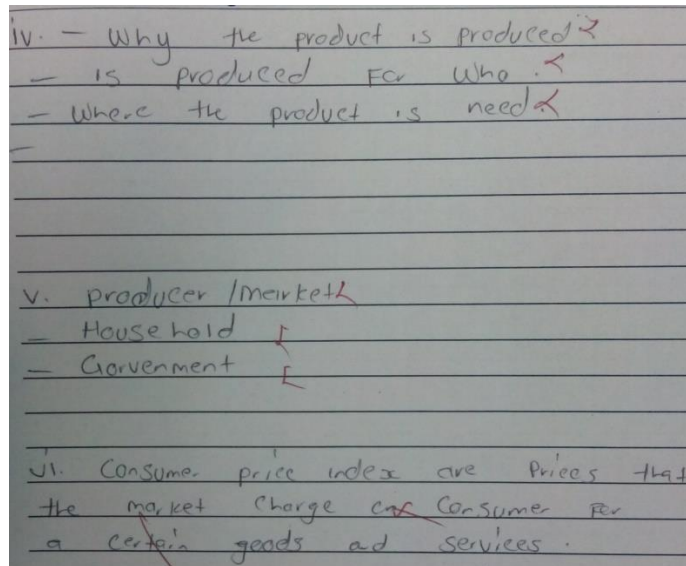 iv. - Why the product is produced?
- is produced For who.
- Where the product is need.
-
v. producer /meirket
- House hold
- Gorvenment
vi. Consumer price index are Prices that
the market Charge Consumer For
a certain goods ad services.